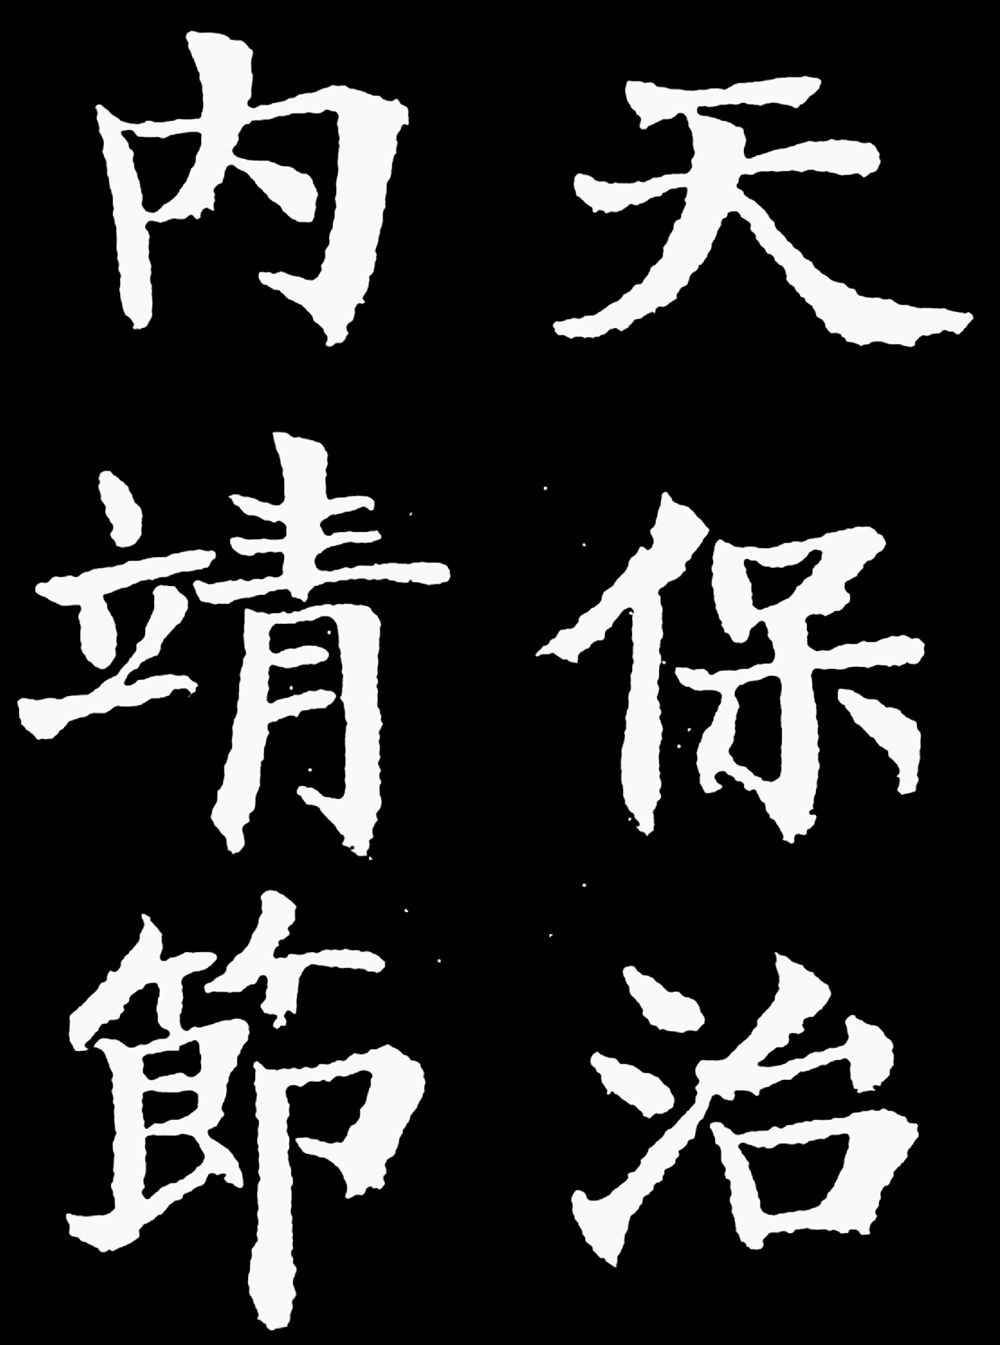 天保治
内靖節